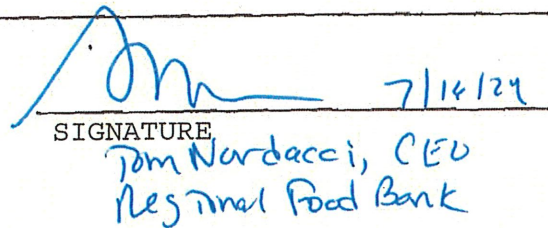 7/16/24
SIGNATURE
Tom Nardacci, CEO
Regional Food Bank